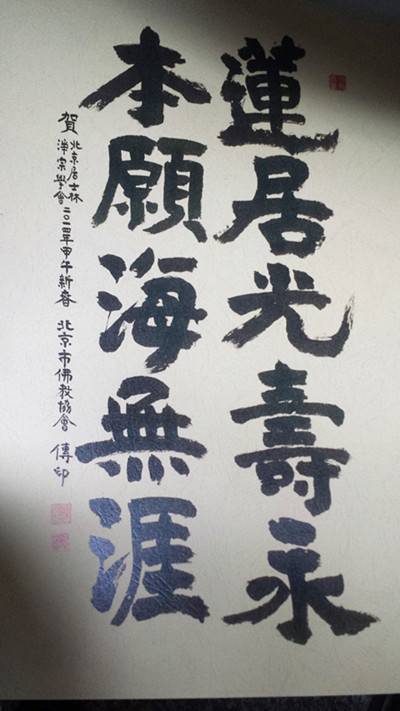 蓮居光壽永
本願海無涯
賀北京居士林
淨宗學會二〇一四年甲午新春 北京市佛教協會 傳印